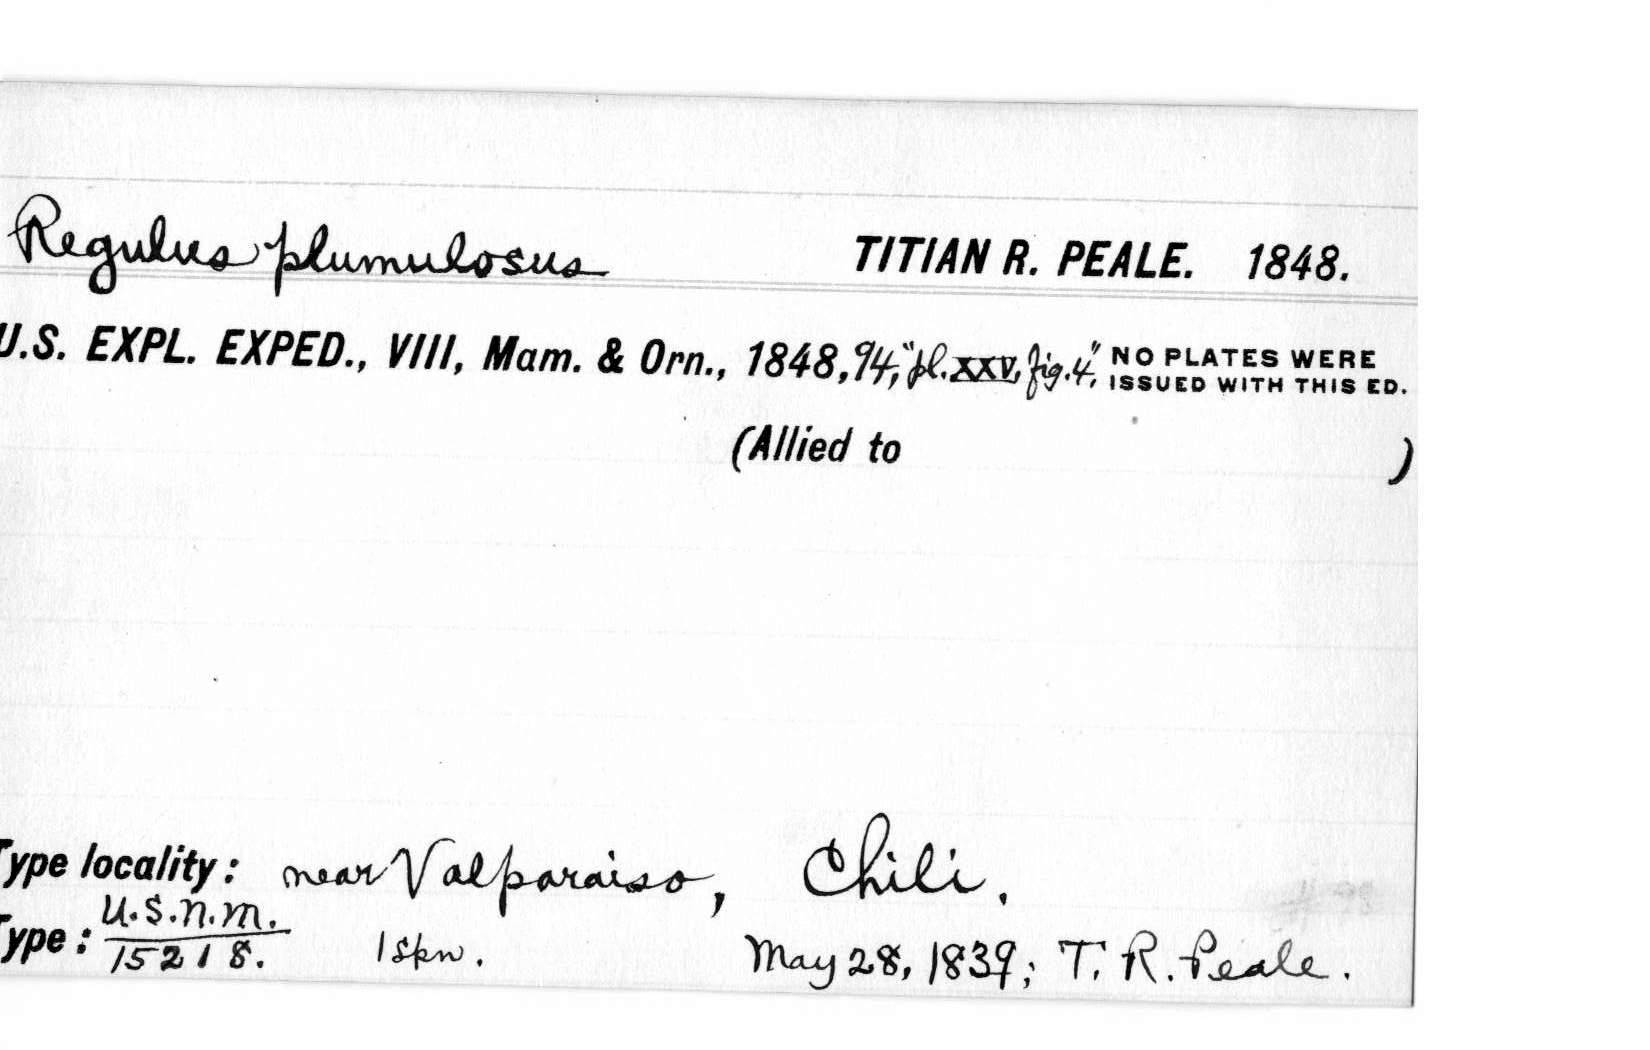 Regulus plumulosus TITIAN R. PEALE. 1848.
U.S. EXPL. EXPED., VIII, Mam. & Orn., 1848, 94, "pl. XXV, fig. 4," NO PLATES WERE
ISSUED WITH THIS ED.
(Allied to )
Type locality: near Valparaiso, Chili.
Type: U.S.N.M.
15218. 1 skn. May 28, 1839; T. R. Peale.